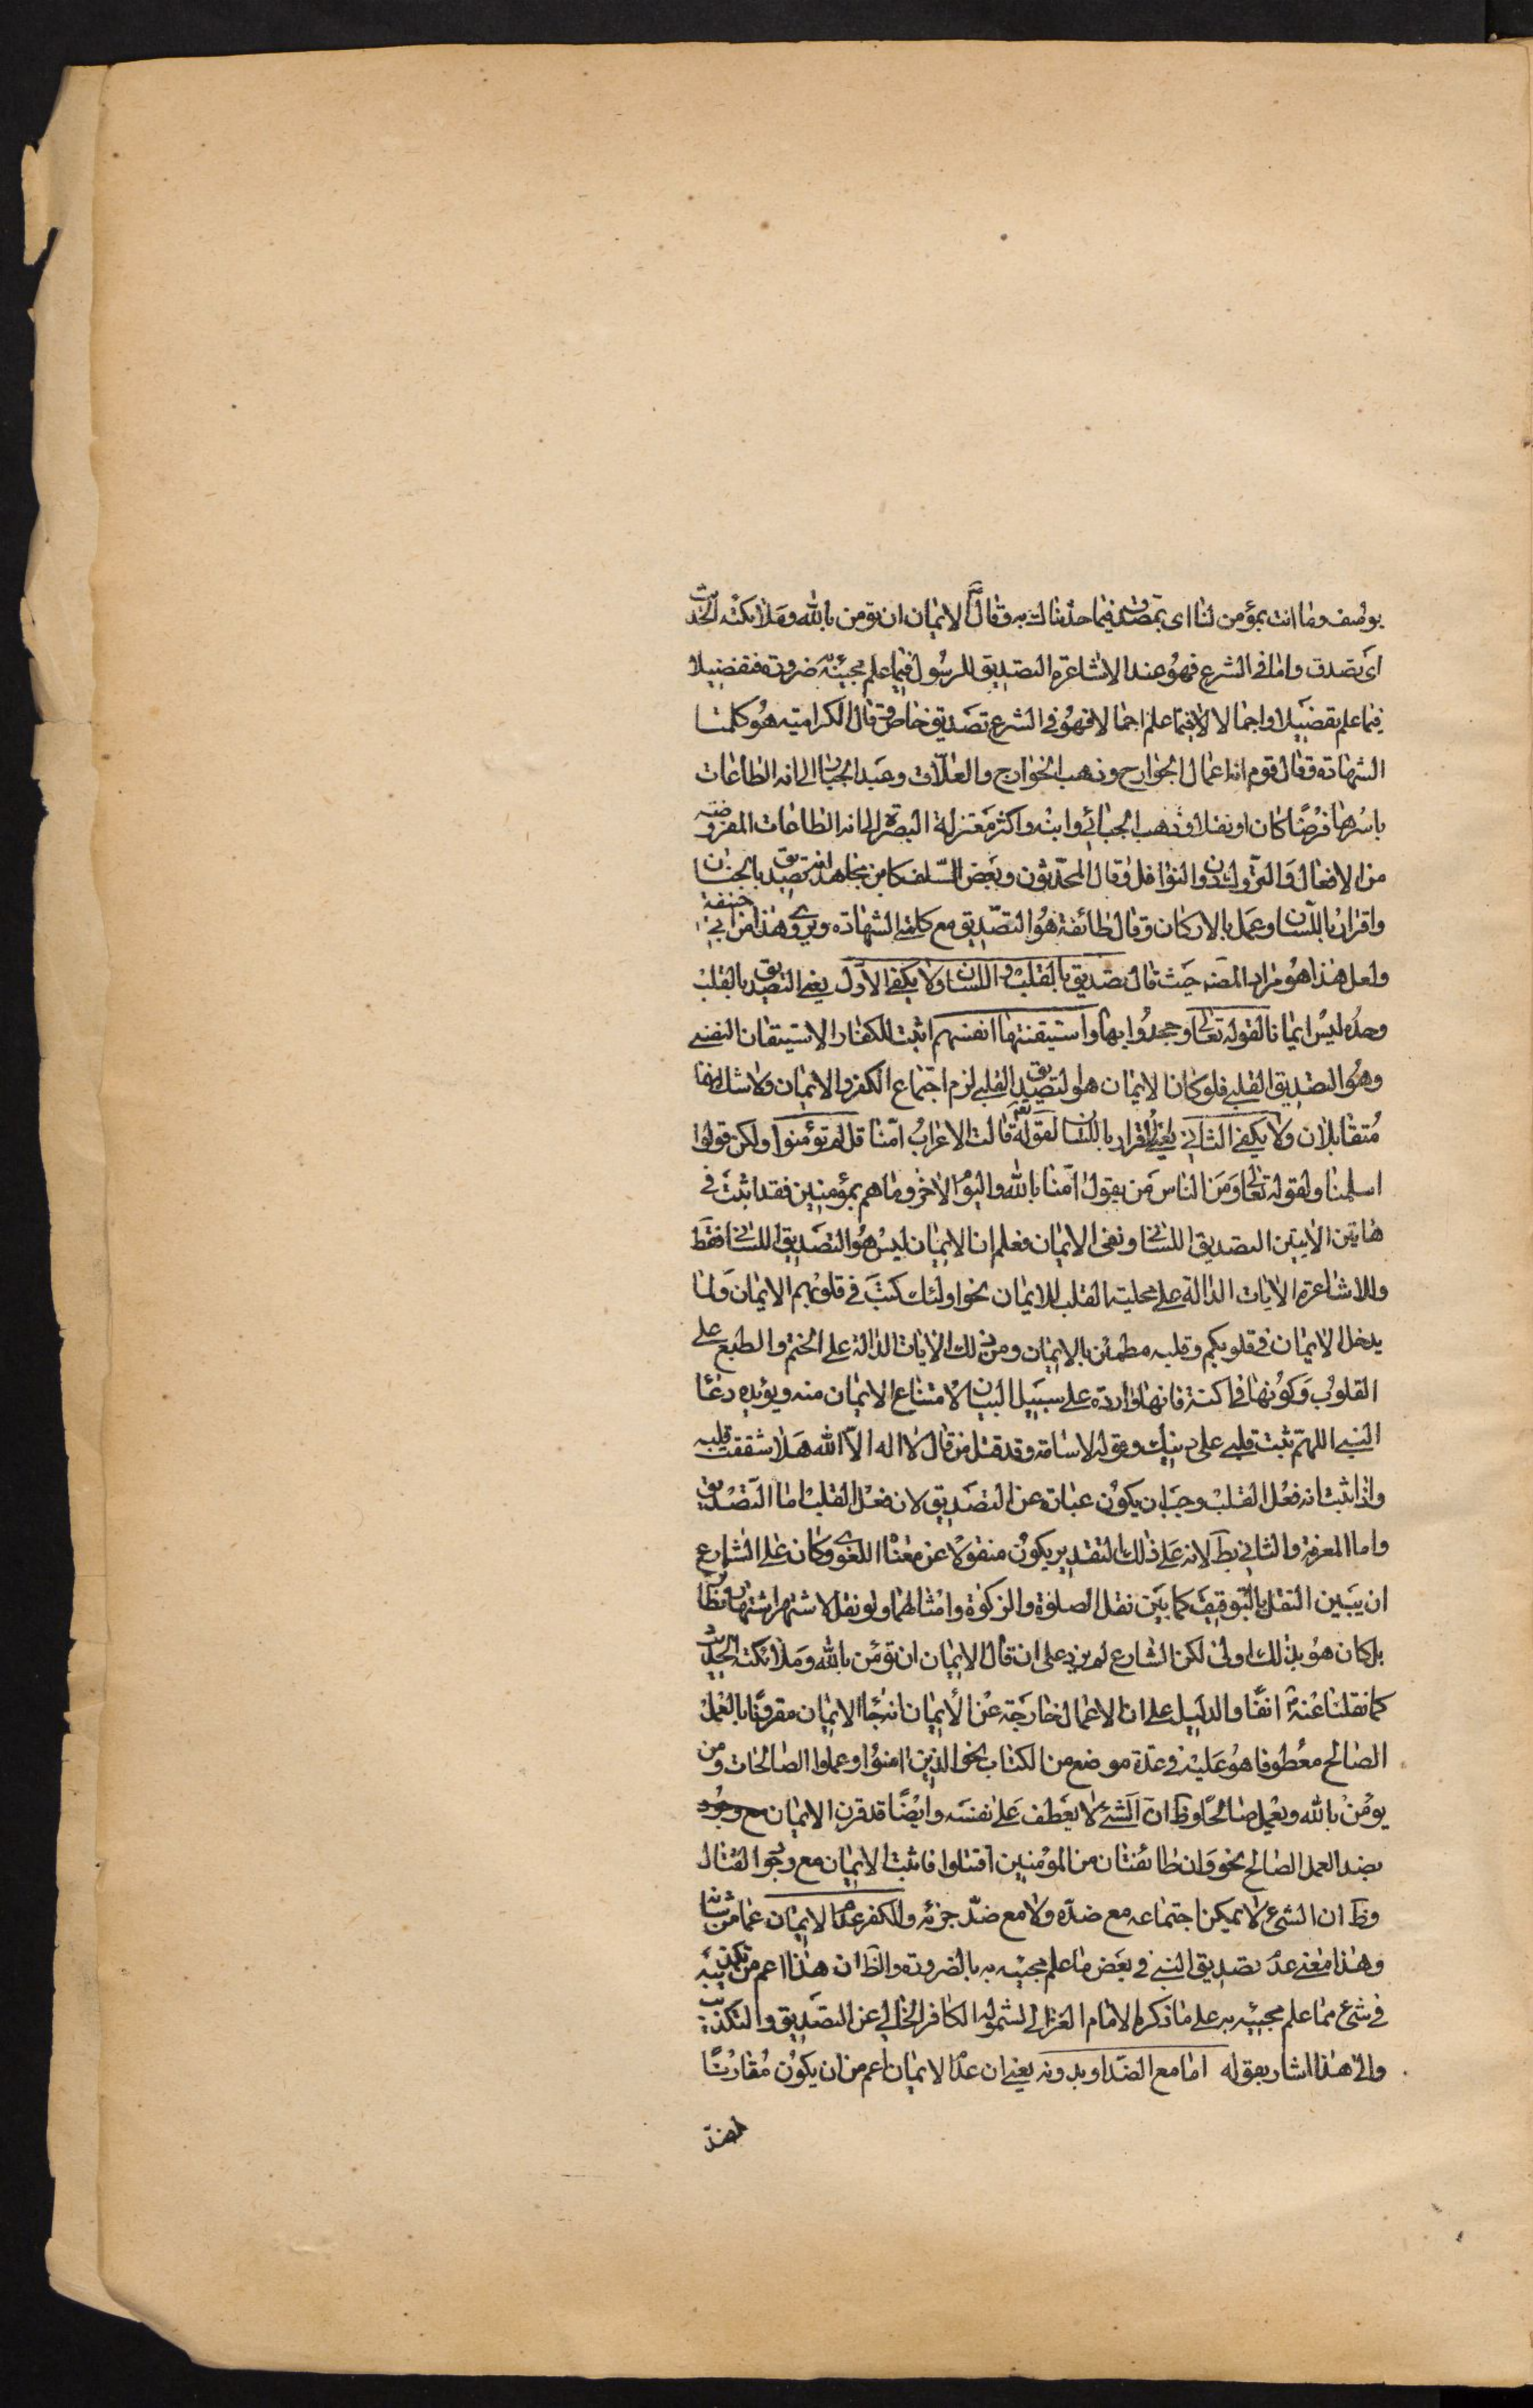 يوسف وما انت بمؤمن لنا اى بمصدق فيما حدثناك به وقال الايمان ان تؤمن بالله وملائكته الحديث
اى تصدق واما فى الشرع فهو عند الاشاعرة التصديق للرسول فيما علم مجيئه ضرورة فتفصيلا
فيما علم تفصيلا واجمالا فيما علم اجمالا فهو فى الشرع تصديق خاص وقال الكرامية هو كلمتا
الشهادة وقال قوم انه اعمال الجوارح وذهب الخوارج والعلاف وعبد الجبار الى انه الطاعات
باسرها فرضا كان او نفلا وذهب الجبائى وابنه واكثر معتزلة البصرة الى انه الطاعات المفروضة
من الافعال والتروك دون النوافل وقال المحدثون وبعض السلف كابن مجاهد انه تصديق بالجنان
واقرار باللسان وعمل بالاركان وقال طائفة هو التصديق مع كلمة الشهادة ويروى هذا من ابى حنيفة
ولعل هذا هو مراد المصنه حيث قال تصديق بالقلب واللسان ولا يكفى الاول يعنى التصديق بالقلب
وحده ليس ايمانا لقوله تعالى وجحدوا بها واستيقنتها انفسهم اثبت للكفار الاستيقان النفسى
وهو التصديق القلبى فلو كان الايمان هو التصديق القلبى لزم اجتماع الكفر والايمان ولا شك انهما
متقابلان ولا يكفى الثانى يعنى الاقرار باللسان لقوله تعالى قالت الاعراب آمنا قل لم تؤمنوا ولكن قولوا
اسلمنا ولقوله تعالى ومن الناس من يقول آمنا بالله واليوم الاخر وما هم بمؤمنين فقد اثبت فى
هاتين الآيتين التصديق اللسانى ونفى الايمان فعلم ان الايمان ليس هو التصديق اللسانى فقط
وللاشاعرة الايات الدالة على محلية القلب للايمان نحو اولئك كتب فى قلوبهم الايمان ولما
يدخل الايمان فى قلوبكم وقلبه مطمئن بالايمان ومن ذلك الايات الدالة على الختم والطبع على
القلوب وكونها فى اكنة فانها واردة على سبيل البيان لامتناع الايمان منه ويؤيده دعا
النبى اللهم ثبت قلبى على دينك وقوله لاسامة وقد قتل من قال لا اله الا الله هلا شققت قلبه
واذا ثبت انه فعل القلب وجب ان يكون عبارة عن التصديق لان فعل القلب اما التصديق
واما المعرفة والثانى بط لانه على ذلك التقدير يكون منقولا عن معناه اللغوى وكان على الشارع
ان يبين النقل بالتوقيف كما بين نقل الصلوة والزكوة وامثالهما ولو نقل لاشتهر اشتهار نظائره
بل كان هو بذلك اولى لكن الشارع لم يزد على ان قال الايمان ان تؤمن بالله وملائكته الحديث
كما نقلنا عنه آنفا والدليل على ان الاعمال خارجة عن الايمان انه جا الايمان مقرونا بالعمل
الصالح معطوفا هو عليه فى عدة موضع من الكتاب نحو الذين امنوا وعملوا الصالحات ومن
يومن بالله ويعمل صالحا وظ ان الشئ لا يعطف على نفسه وايضا قد قرن الايمان مع وجود
بضد العمل الصالح نحو وان طائفتان من المؤمنين اقتتلوا فاثبت الايمان مع وجود القتال
وظ ان الشئ لا يمكن اجتماعه مع ضده ولا مع ضد جزئه والكفر عدم الايمان عما من شانه
وهذا معنى عدم تصديق النبى فى بعض ما علم مجيئه به بالضرورة والظ ان هذا اعم من تكذيبه
فى شئ مما علم مجيئه به على ما ذكره الامام الغزالى لشموله الكافر الخالى عن التصديق والتكذيب
والى هذا اشار بقوله اما مع الضد او بدونه يعنى ان عدم الايمان اعم من ان يكون مقارنا
لضد